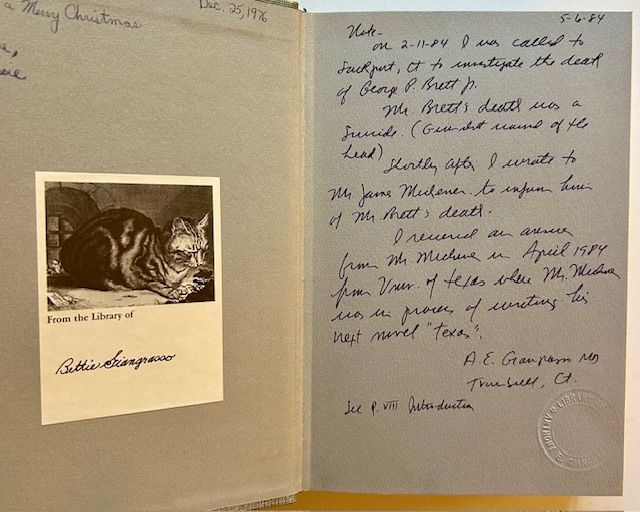 a Merry Christmas
Dec. 25, 1976
From the Library of
Bettie Giangrasso
5-6-84
Note-
on 2-11-84 I was called to
, Ct to investigate the death
of George P. Brett Jr.
Mr. Brett's death was a
Suicide. (Gunshot wound of the
head)
Shortly after I wrote to
Mr. James Michener to inform him
of Mr Brett's death.
I received an answer
from Mr. Michener in April 1984
from Univ. of Texas where Mr. Michener
was in process of writing his
next novel "Texas".
A. E. Giangrasso MD
Trumbull, Ct.
See P. VIII Introduction
LIBRARY